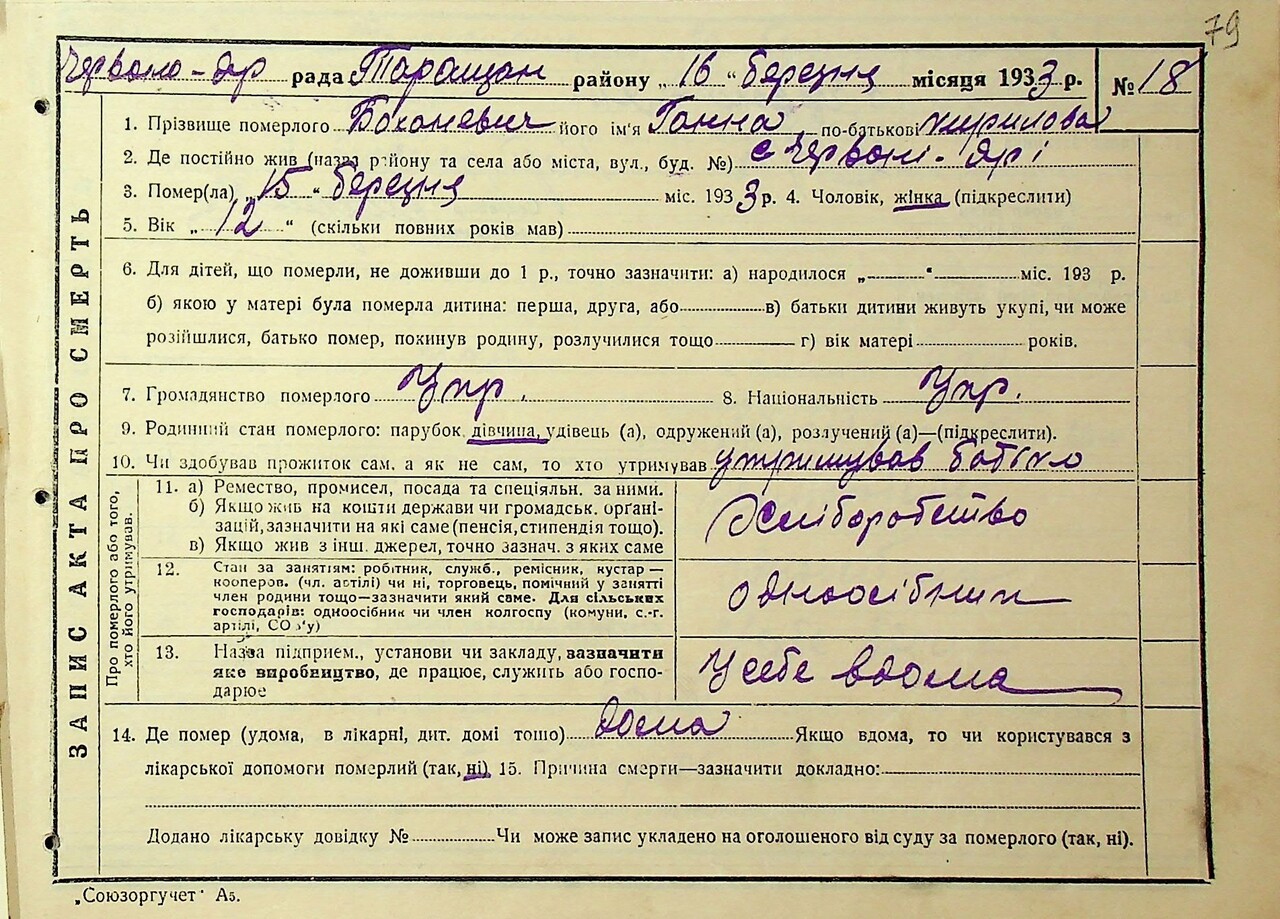 79
Червоно-Яр рада Таращан району „16" березня місяця 1933 р. № 18
1. Прізвище померлого Боконевич його ім'я Ганна, по-батькові Кирилова
2. Де постійно жив (назва району та села або міста, вул., буд. №) с Червоні-Ярі
3. Помер(ла) „15" березня міс. 1933 р. 4. Чоловік, жінка (підкреслити)
5. Вік „12" (скільки повних років мав)
6. Для дітей, що померли, не доживши до 1 р., точно зазначити: а) народилося „ " міс. 193 р.
б) якою у матері була померла дитина: перша, друга, або в) батьки дитини живуть укупі, чи може
розійшлися, батько помер, покинув родину, розлучилися тощо г) вік матері років.
7. Громадянство померлого Укр. 8. Національність Укр.
9. Родинний стан померлого: парубок, дівчина, удівець (а), одружений (а), розлучений (а)—(підкреслити).
10. Чи здобував прожиток сам, а як не сам, то хто утримував утримував батько
ЗАПИС АКТА ПРО СМЕРТЬ
Про померлого або того, хто його утримував.
11. а) Ремество, промисел, посада та спеціяльн. за ними.
б) Якщо жив на кошти держави чи громадськ. орґані-
зацій, зазначити на які саме (пенсія, стипендія тощо).
в) Якщо жив з інш. джерел, точно зазнач. з яких саме
Хліборобство
12. Стан за занятіям: робітник, служб., ремісник, кустар—
кооперов. (чл. астілі) чи ні, торговець, помічний у занятті
член родини тощо—зазначити який саме. Для сільських
господарів: одноосібник чи член колгоспу (комуни, с.-г.
артілі, СО у)
одноосібник
13. Назва підприєм., установи чи закладу, зазначити
яке виробництво, де працює, служить або госпо-
дарює
У себе вдома
14. Де помер (удома, в лікарні, дит. домі тощо) дома Якщо вдома, то чи користувався з
лікарської допомоги померлий (так, ні) 15. Причина смерти—зазначити докладно:
Додано лікарську довідку № Чи може запис укладено на оголошеного від суду за померлого (так, ні).
„Союзоргучет" А5.